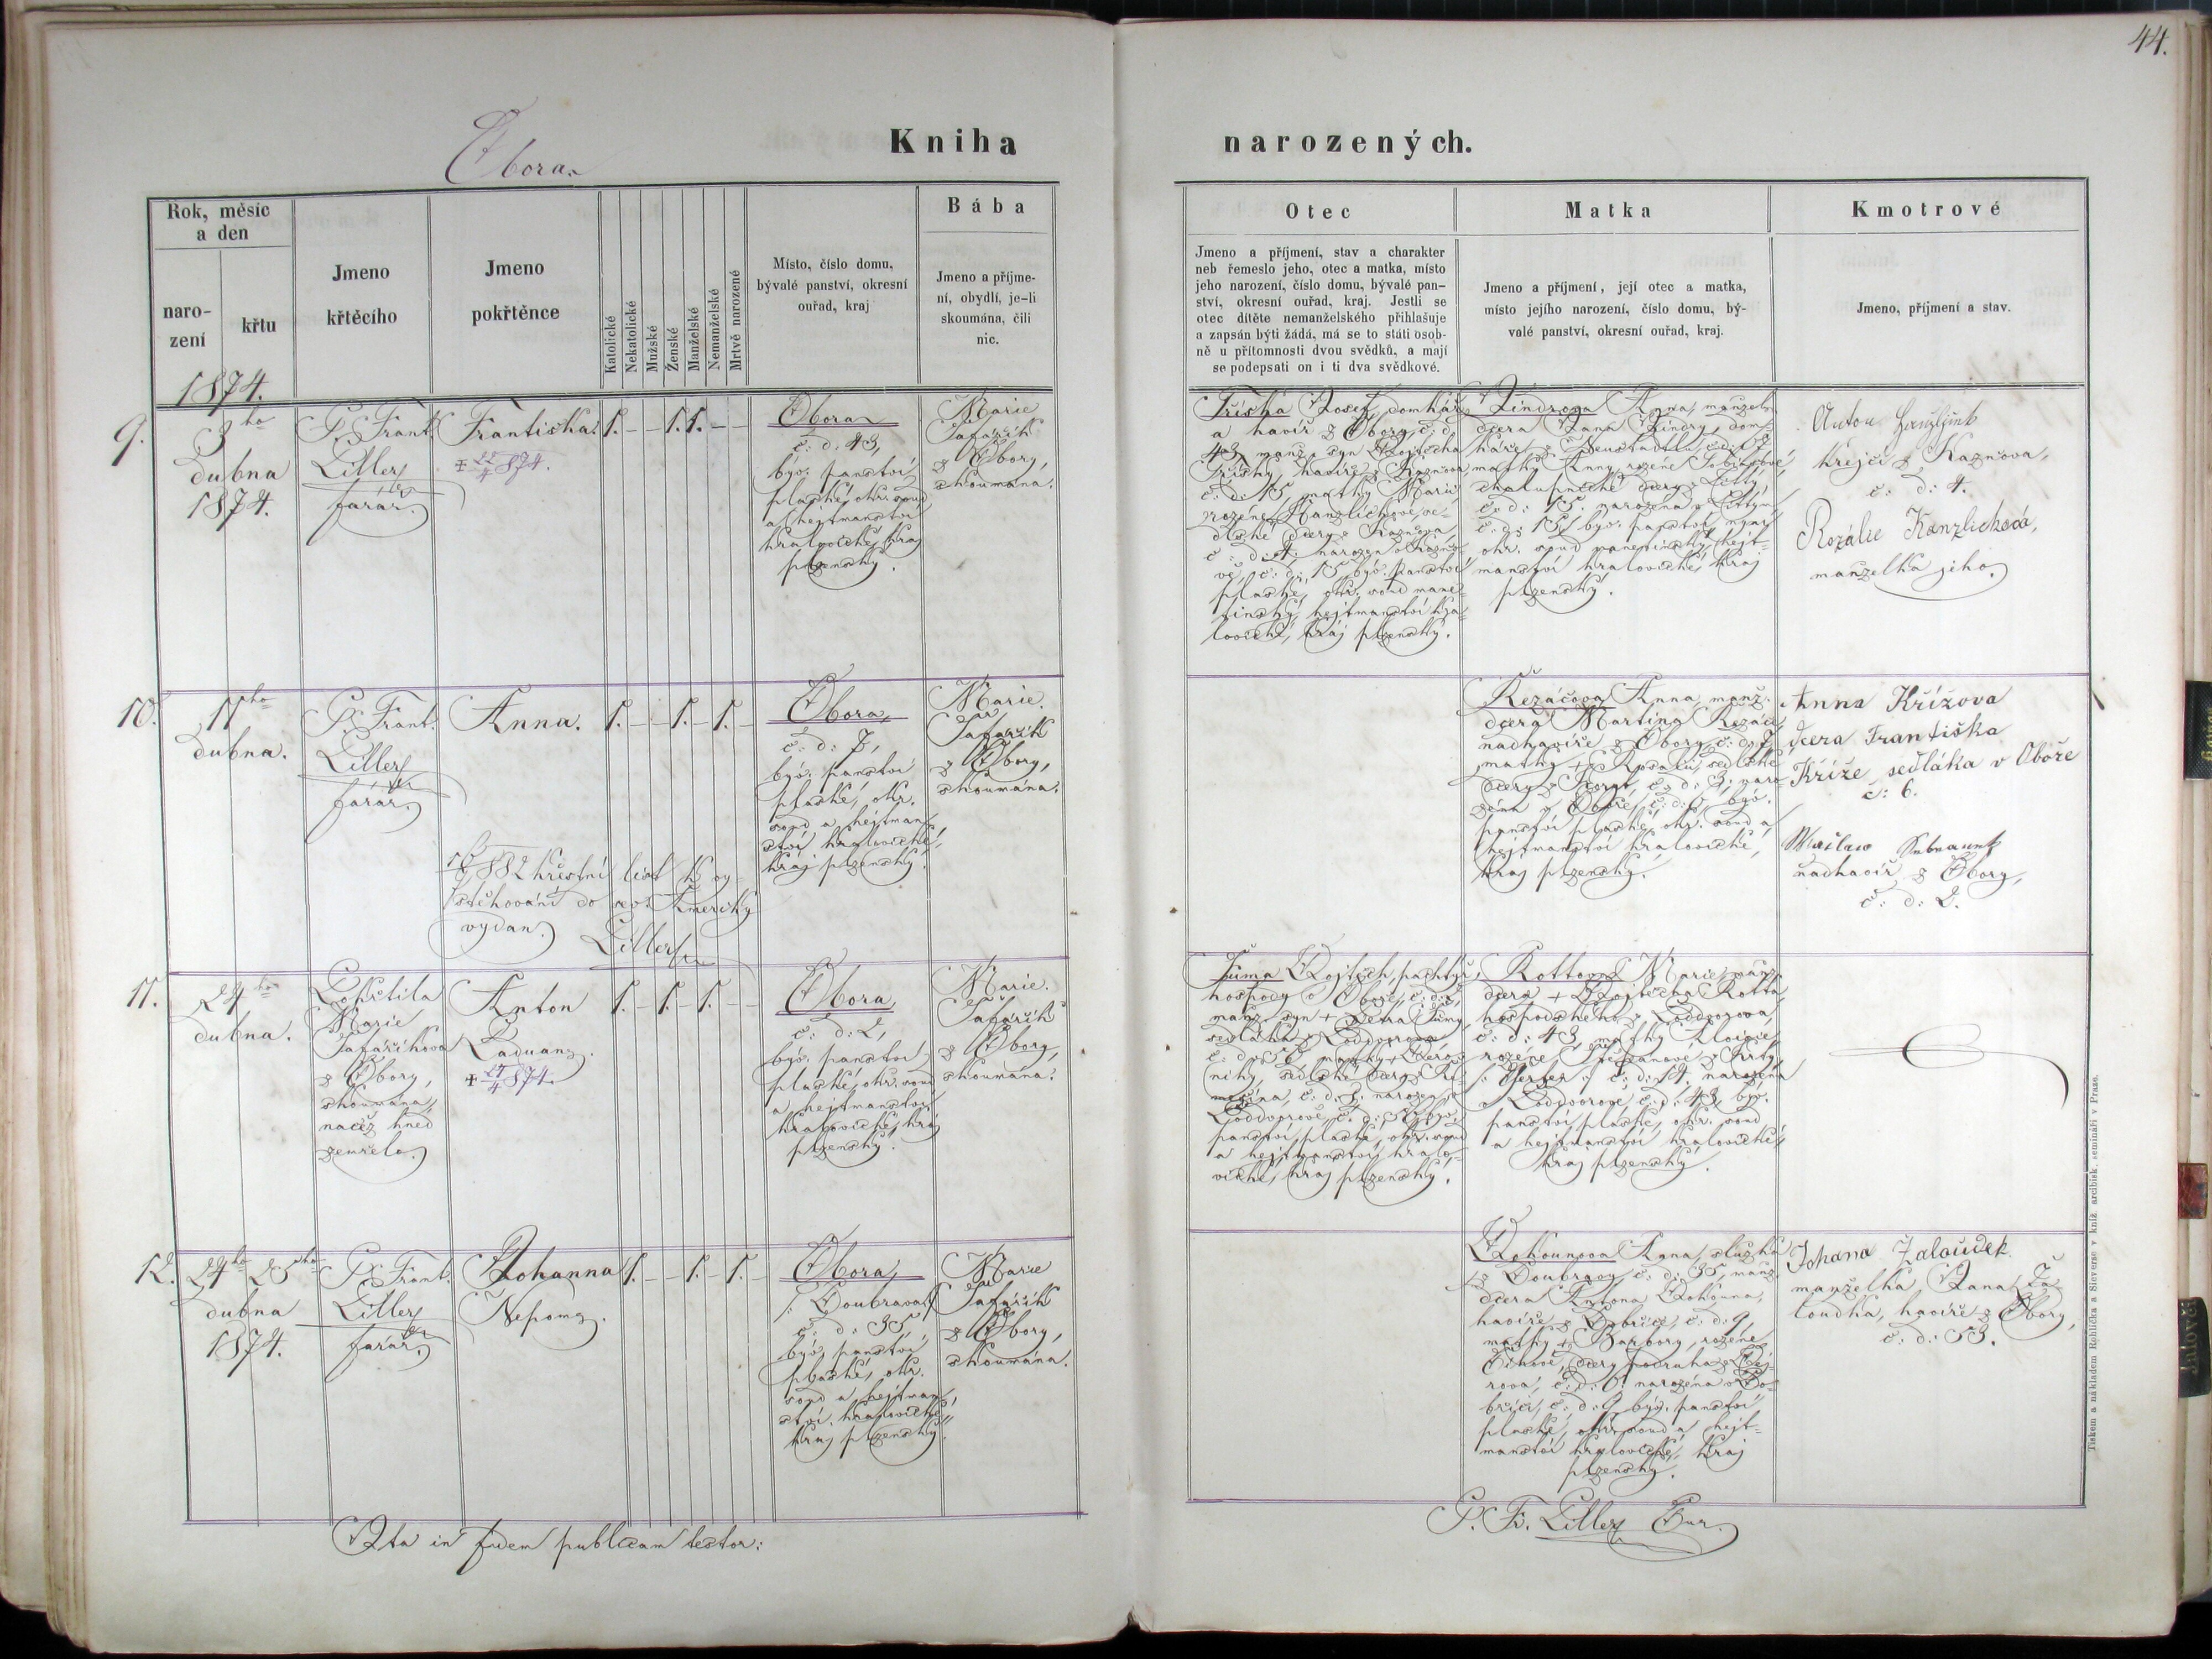 44.
Obora.
Kniha
narozených.
Rok, měsíc
a den
naro-
zení
křtu
Jmeno
křtěcího
Jmeno
pokřtěnce
Katolické
Nekatolické
Mužské
Ženské
Manželské
Nemanželské
Mrtvě narozené
Místo, číslo domu,
bývalé panství, okresní
ouřad, kraj
Bába
Jmeno a příjme-
ní, obydlí, je-li
skoumána, čili
nic.
Otec
Jmeno a příjmení, stav a charakter
neb řemeslo jeho, otec a matka, místo
jeho narození, číslo domu, bývalé pan-
ství, okresní ouřad, kraj. Jestli se
otec dítěte nemanželského přihlašuje
a zapsán býti žádá, má se to státi osob-
ně u přítomnosti dvou svědků, a mají
se podepsati on i ti dva svědkové.
Matka
Jmeno a příjmení, její otec a matka,
místo jejího narození, číslo domu, bý-
valé panství, okresní ouřad, kraj.
Kmotrové
Jmeno, příjmení a stav.
1874.
9.
3ho
dubna
1874.
P. Frant.
Liller
farář.
Františka.
+ 22/4 874.
1. – – 1. 1. – –
Obora
č: d: 43,
býv. panství
plaské, okr. soud
a hejtmanství
kralovické, kraj
plzenský.
Marie
Šafařík
z Obory,
zkoumána.
Tříska Josef, domkář
a havíř z Obory, č: d:
43, manž. syn Vojtěcha
Třísky, havíře z Kaznova
č: d: 15, matky Marie
rozené Hanzlíchové, se-
dlské dcery z Kaznova,
č: d: 4, narozen v Kazno-
vě, č: d: 15, býv. panství
plaské, okr. soud mane-
tinský, hejtmanství kra-
lovické, kraj plzenský.
Jindrova Anna, manžel.
dcera Jana Jindry, dom-
káře z
matky Anny, rozené
chalupnické dcery z
č: d: 15. narozena v
č: d: 15, býv. panství
okr. soud manetinský, hejt-
manství kralovické, kraj
plzenský.
Anton
krejčí z Kaznova,
č: d: 4.
Rozálie Hanzlicková,
manželka jeho.
10.
11ho
dubna.
P. Frant.
Liller
farář.
Anna.
1. – – 1. – 1. –
882 křestní list k vy-
stěhování do sev. Ameriky
vydan.
Liller
Obora,
č: d: 7,
býv. panství
plaské, okr.
soud a hejtman-
ství kralovické,
kraj plzenský.
Marie
Šafařík
z Obory,
zkoumána.
Řezáčova Anna, manž.
dcera Martina Řezáče,
nadhavíře z Obory, č: d: 7,
matky + Rosalie, sedlské
dcery z č: d: 3. naro-
zena v Oboře, č: d: býv.
panství plaské, okr. soud a
hejtmanství kralovické,
kraj plzenský.
Anna Křížova
dcera Františka
Kříže sedláka v Oboře
č: 6.
nadhavíř z Obory,
č: d: 2.
11.
24ho
dubna.
Pokřtila
Marie
Šafaříkova
z Obory,
zkoumána,
načež hned
zemřelo.
Anton
+ 24/4 874.
1. – 1. – 1. – –
Obora,
č: d: 2,
býv. panství
plaské, okr. soud
a hejtmanství
kralovické, kraj
plzenský.
Marie
Šafařík
z Obory,
zkoumána.
Tůma Vojtěch, pachtýř
hospody v Oboře, č: d: 2,
manž. syn + Petra Tůmy,
sedláka z Loddvorova
č: d: 56 matky + Vero-
niky, sedlské dcery z
č: d: 1. narozen v
Loddvorově, č: d: býv.
panství plaské, okr. soud
a hejtmanství kralo-
vické, kraj plzenský.
Rottova Marie, manž.
dcera + Vojtěcha Rotta,
hospodského z Loddvorova,
č: d: 43, matky Aloisie,
rozené Štěpánové z
č: d: 14. narozena
v Loddvorově č: d: 43, býv.
panství plaské, okr. soud
a hejtmanství kralovické,
kraj plzenský.
12.
24ho 25ho
dubna
1874.
P. Frant.
Liller
farář.
Johanna
Nepom.
1. – – 1. – 1. –
Obora,
/: Doubrava :/
č: d: 35,
býv. panství
plaské, okr.
soud a hejtman-
ství kralovické,
kraj plzenský.
Marie
Šafařík
z Obory,
zkoumána.
Bohounova Anna, služka
z Doubravy, č: d: 35, manž.
dcera Antona Bohouna,
havíře z Dobříče, č: d: 9,
matky + Barbory, rozené
dcery podruha z
rova, č: d: 6. narozena v Do-
bříči, č: d: 9, býv. panství
plaské, okr. soud a hejt-
manství kralovické, kraj
plzenský.
Johana Zaloudek
manželka Jana Ža-
loudka, havíře z Obory,
č: d: 53.
Ita in fidem publicam testor:
P. Fr. Liller Cur.
Tiskem a nákladem Rohlíčka a Sieverse v kníž. arcibisk. semináři v Praze.